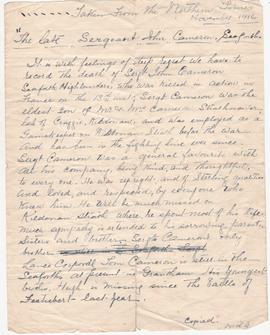 Taken From the Northern Times
1916
"The late Sergeant John Cameron, Seaforths
It is with feelings of deep regret we have to
record the death of Sergt John Cameron
Seaforth Highlanders, who was killed in action in
France on the 13th Sergt Cameron was the
eldest son of Mr & Mrs Cameron
Kildonan, and was employed as a
Gamekeeper on Kildonan Strath before the war
And has been in the fighting line ever since.
Sergt Cameron was a general favourite with
all his company, being kind, and thoughtful,
to every one. He was upright, and of Sterling qualities
And loved, and respected, by everyone who
knew him. He will be much missed in
Kildonan Strath where he spent most of his life.
Much sympathy is extended to his sorrowing parents,
Sisters and brothers Sergt Cameron's only
brother
Lance Corporal Tom Cameron is also in the
Seaforths at present in Grantham. His youngest
brother Hugh is missing since the battle of
Festubert last year.
Copied